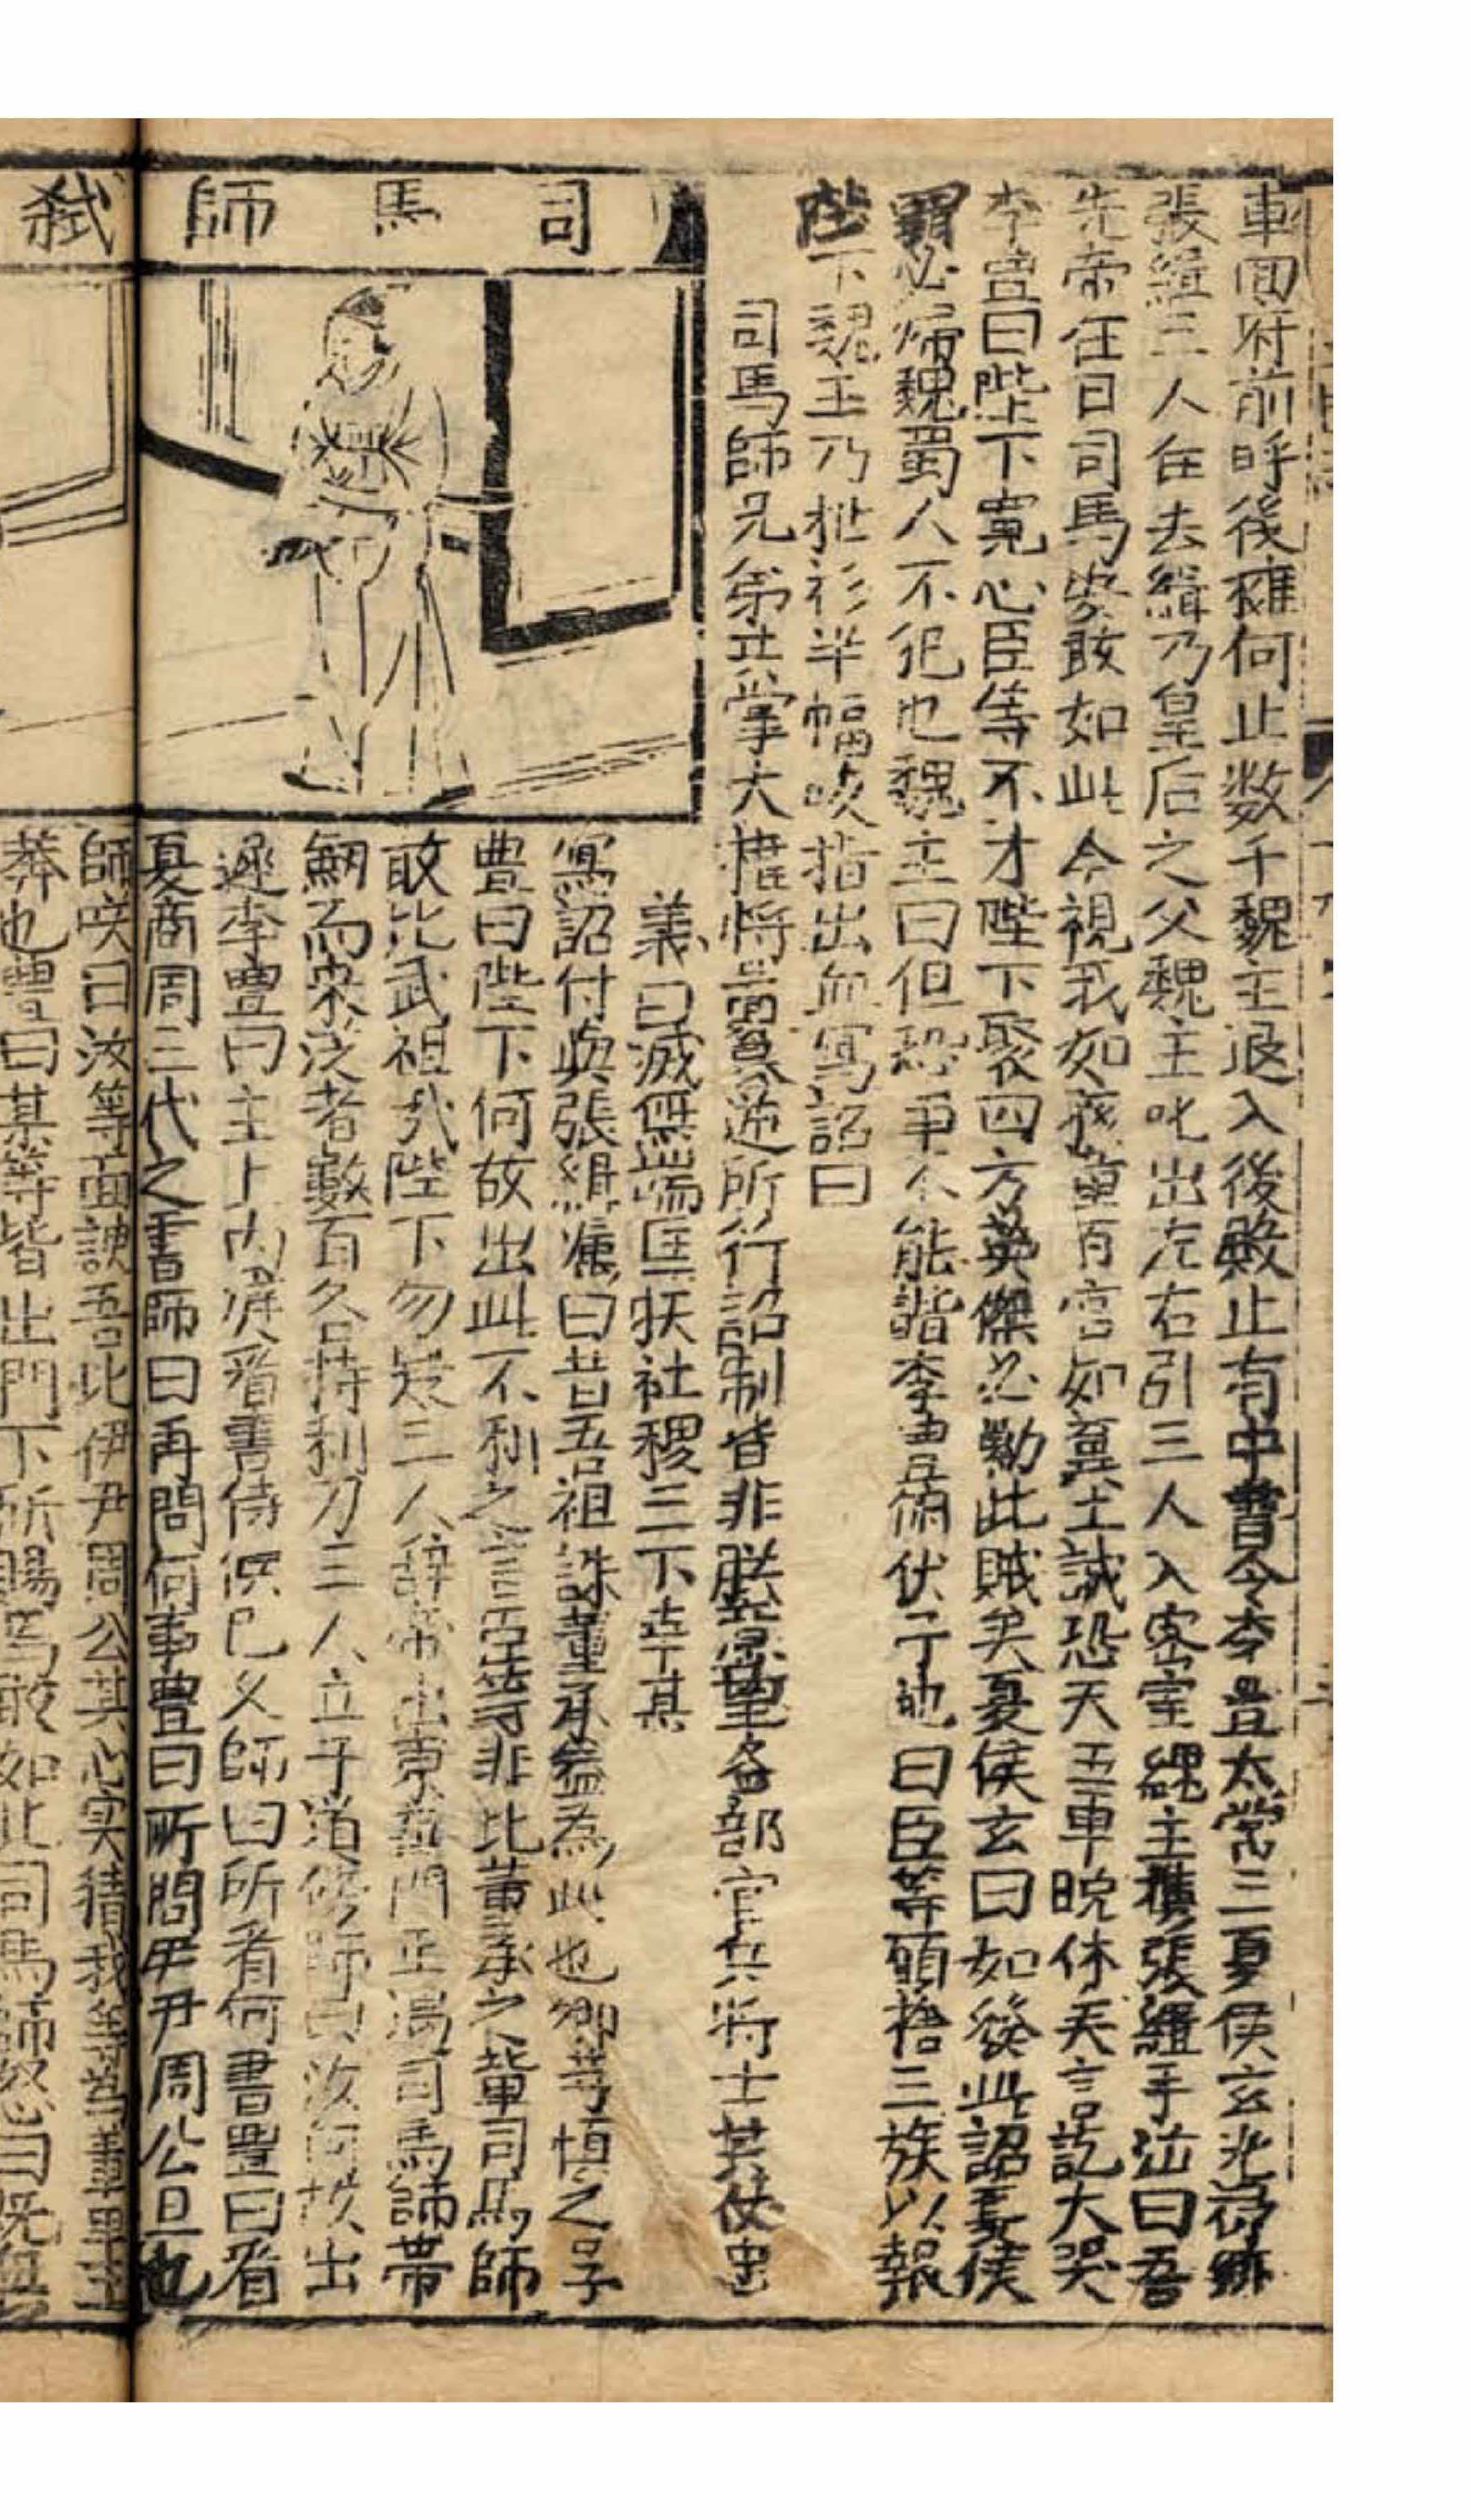 車回府前呼後擁何止数千魏主退入後殿止有中書令李豊太常三夏侯玄光祿卿
張緝三人在去緝乃皇后之父魏主叱出左右引三人入密室魏主携張緝手泣曰吾
先帝在日司馬安敢如此今視我如孩童百官如糞土誠恐天下車晚休矣言訖大哭
李豊曰陛下寬心臣等不才陛下聚四方英傑必勦此賊矣夏侯玄曰如發此詔夏侯
覇必帰魏蜀人不犯也魏主曰但恐事不能諧李豊俯伏于地曰臣等願捨三族以報
陛下魏王乃扯衫半幅咬指出血写詔曰
司馬師兄弟共掌大權將啚篡逆所行詔制皆非朕意望各部官兵将士其仗忠
義曰滅無端匡扶社稷三下幸甚
寫詔付與張緝痛曰昔吾祖誅董承盖為此也卿等慎之李
豊曰陛下何故出此不利之言臣等非比董承之輩司馬師
敢比武祖哉陛下勿疑三人辞帝出東華門正遇司馬師帯
劔而来従者數百各持利刀三人立于道傍師曰汝何故出
遲李豊曰主上内廷看書侍供已久師曰所看何書豊曰看
夏商周三代之書師曰再問何事豊曰所問伊尹周公旦也
師咲曰汝等面諛吾比伊尹周公其心实猜我為董卓王
莽也豊曰某等皆出門下所賜焉敢如此司馬師怒曰既無
司馬師弒